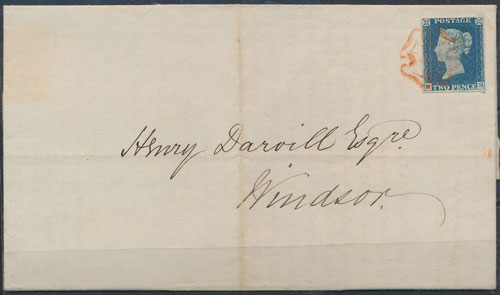 POSTAGE
TWO PENCE
Henry Darvill Esqre.
Windsor.